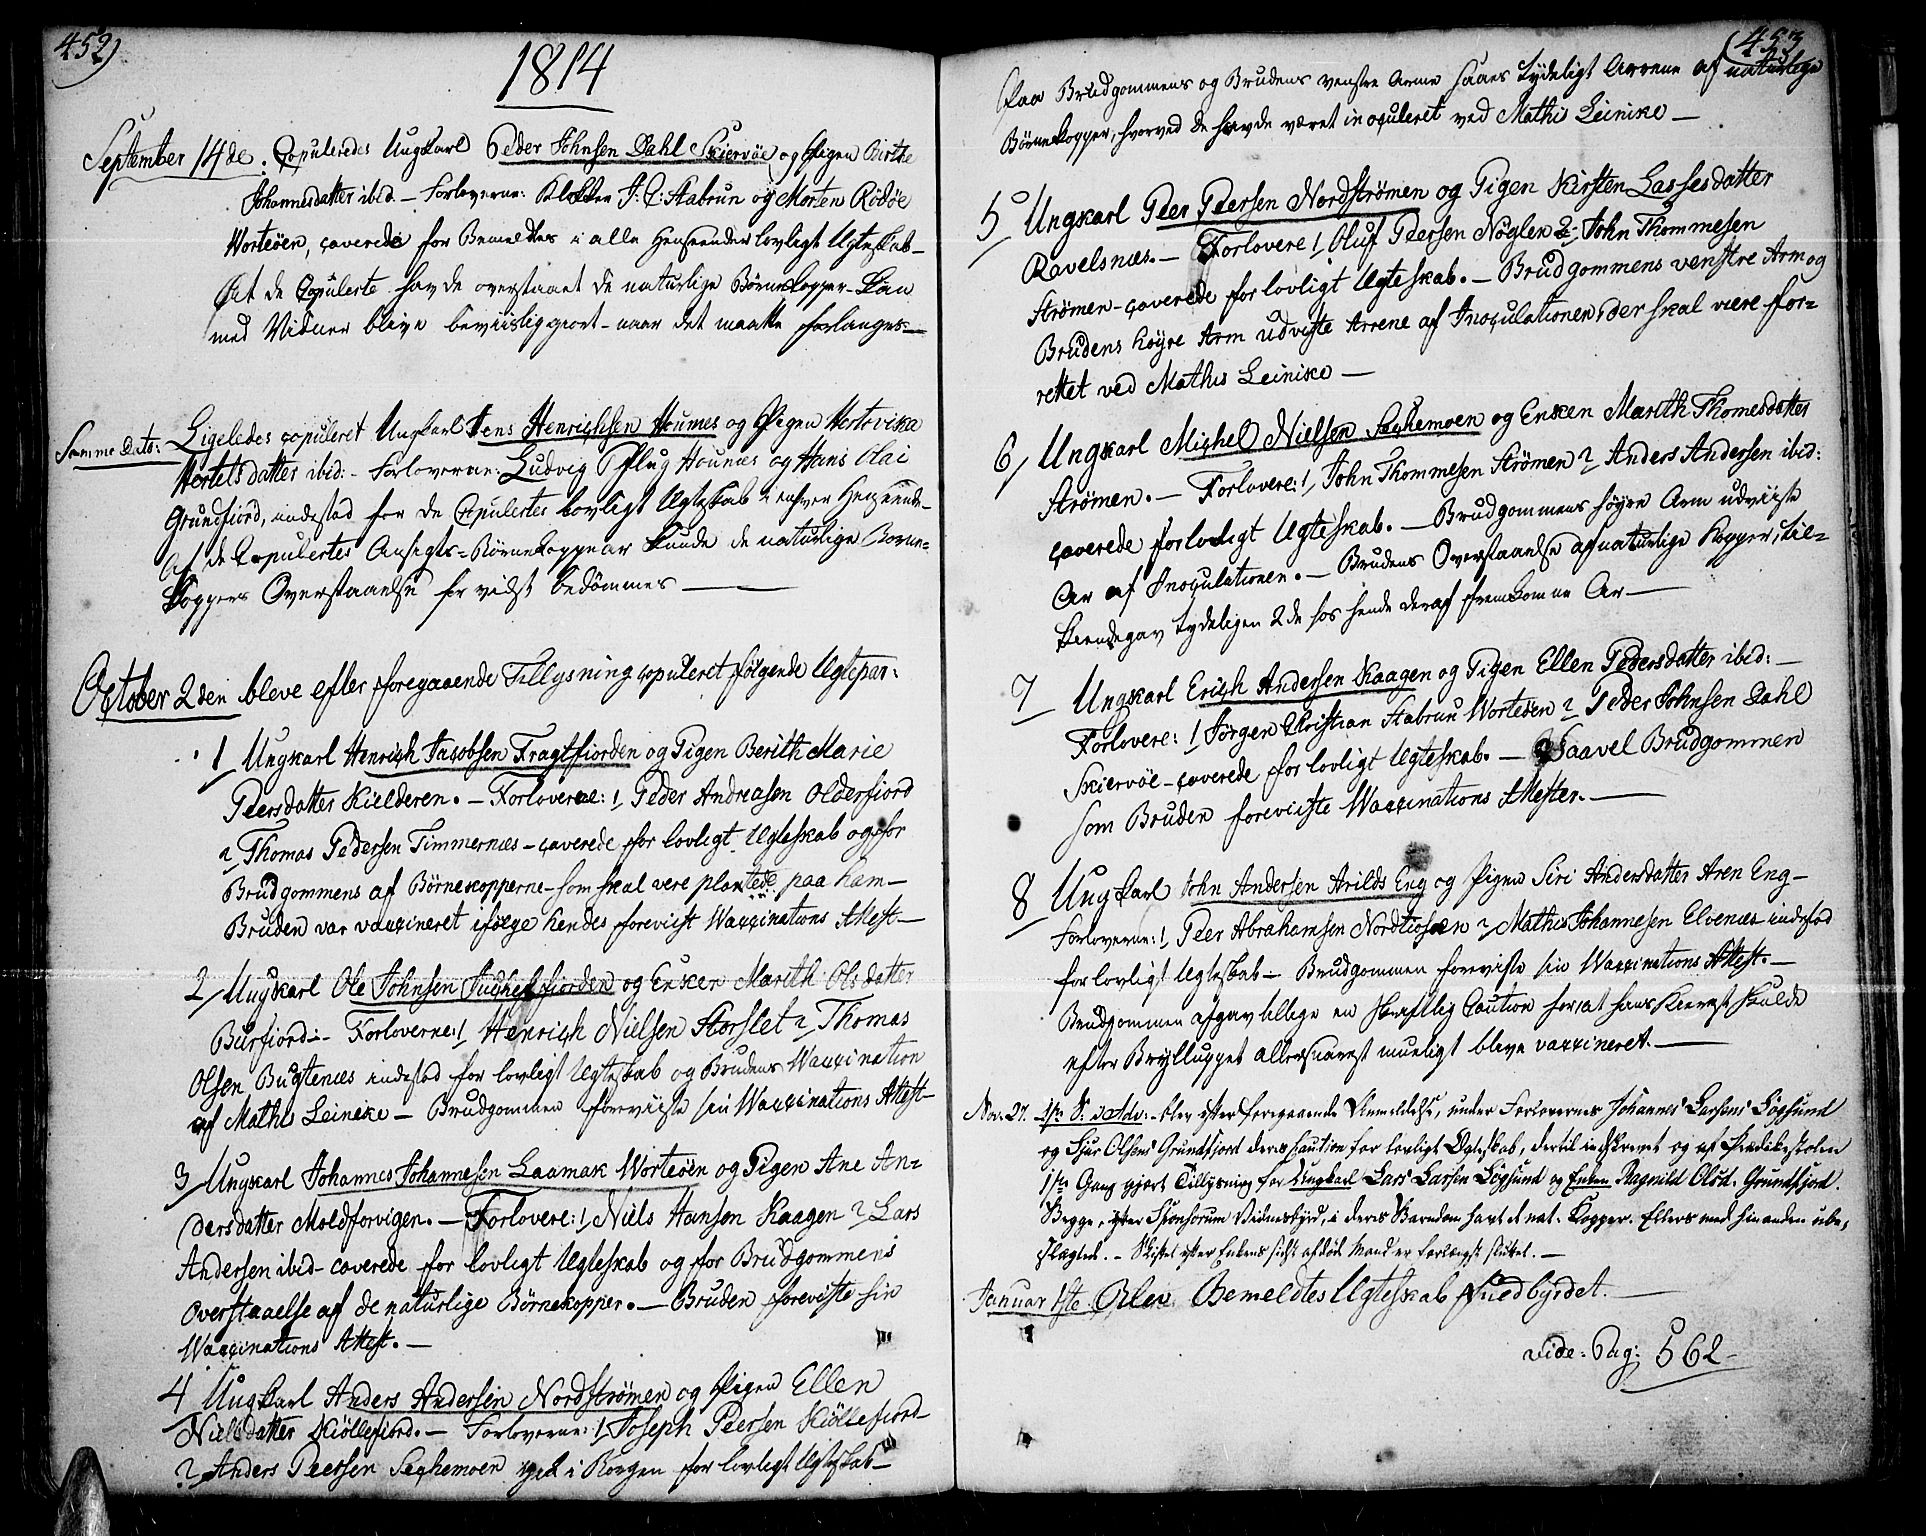 452)
1814
September 14de: Copuleredes Ungkarl Peder Johnsen Dahl Skiervöe og Pigen Birthe
Johannesdatter ibid. – Forloverne: Klokker J: C: Stabrun og Morten Rödöe
Worteöen, caverede for Bemeldtes i alle Henseender lovligt Ægteskab –
At de Copulerte havde overstaaet de naturlige Börnekopper – kan
med Vidner blive beviisliggiort – naar det maatte forlanges. –
Samme Dato: Ligeledes copuleret Ungkarl Jens Henrichsen Hounes og Pigen Hertvika
Hertelsdatter ibid: – Forloverne: Ludvig Pflug Hounæs og Hans Olai
Grundfiord, indestod for de Copulertes lovligt Ægteskab i enhver Henseende –
Af de Copulertes Ansigts-Börnekoppear kunde de naturlige Börne-
koppers Overstaaelse for vidst bedömmes –
October 2den bleve efter foregaaende Tillysning copuleret fölgende Ægtepar:
1 Ungkarl Henrich Jacobsen Fragtfiorden og Pigen Berith Marie
Peersdatter Kielderen. – Forlovere: 1/ Peder Andreasen Olderfiord
2/ Thomas Pedersen Timmernæs – caverede for lovligt Ægteskab og for
Brudgommens af Börnekopperne – som skal vere plantede paa ham –
Bruden var vaxxineret ifölge hendes foreviist Waxxinations Attest –
2/ Ungkarl Ole Johnsen Jöchelfiorden og Enken Marith Olsdatter
Burfiord – Forloverne: 1/ Henrich Nielsen Storslet 2/ Thomas
Olsen Bugtenæs indestod for lovligt Ægteskab og Brudens Waxxination
af Mathis Leinike – Brudgommen foreviiste sin Waxxinations Attest –
3/ Ungkarl Johannes Johannesen Laamak Worteöen og Pigen Ane An-
dersdatter Moldforvigen. – Forlovere: 1/ Niels Hansen Kaagen 2/ Lars
Andersen ibid – caverede for lovligt Ægteskab og for Brudgommens
Overstaaelse af de naturlige Börnekopper. – Bruden foreviste sin
Waxxinations Attest. –
4 Ungkarl Anders Andersen Nordströmen og Pigen Ellen
Nielsdatter Kiöllefiord. – Forloverne: 1/ Joseph Peersen Kiöllefiord –
2/ Anders Peersen Sechemoen gik i Borgen for lovligt Ægteskab –
(453
Paa Brudgommens og Brudens venstre Arme saaes tydeligt Arrene af naturlige
Börnekopper, hvorved de havde været inoculeret ved Mathis Leinike –
5 Ungkarl Peer Peersen Nordströmen og Pigen Kirsten Lassesdatter
Ravelsnæs. – Forlovere 1/ Oluf Peersen Nöglen 2/ John Thommesen
Strömen – caverede for lovligt Ægteskab. – Brudgommens venstre Arm og
Brudens höyre Arm udviste Arrene af Inoculationen, der skal være for-
rettet ved Mathis Leinike –
6/ Ungkarl Michel Nielsen Sechemoen og Enken Marith Thomesdatter
Strömen. – Forlovere: 1/ John Thommesen Strömen 2/ Anders Andersen ibid:
caverede for lovligt Ægteskab. – Brudgommens höyre Arm udviiste
Ar af Inoculationen. – Brudens Overstaaelse af naturlige Kopper, til-
kiendegav tydeligen 2de hos hende deraf fremkomne Ar –
7 Ungkarl Erich Andersen Kaagen og Pigen Ellen Pedersdatter ibid: –
Forlovere: 1/ Jörgen Christian Stabrun Worteöen 2/ Peder Johnsen Dahl
Skiervöe – caverede for lovligt Ægteskab. – Saavel Brudgommen
som Bruden foreviiste Waxxinations Attester. –
8 Ungkarl John Andersen Arilds Eng og Pigen Siri Andersdatter Aren Eng –
Forloverne: 1/ Peer Abrahamsen Nordtiosen 2/ Mathis Johannesen Elvenæs indestod
for lovligt Ægteskab – Brudgommen foreviste sin Waxxinations Attest. –
Brudgommen afgav tillige en skriftlig Caution for, at hans Kiereste skulde
efter Brylluppet allersnarest mueligt blive vaxxineret. –
Nov. 27. 1ste S: i Adv: – blev efter foregaaende Anmeldelse, under Forlovernes Johannes Larsens Lögsund
og Siur Olsens Grundfjord deres Caution for lovligt Ægteskab, dertil indskrevet og af Predikestolen
1ste Gang gjort Tillysning for Ungkarl Lars Larsen Lögsund og Enken Ragnild Olsd. Grundfjord.
Begge, efter Sponsorum Vidnesbyrd, i deres Barndom havt d. nat. Kopper. Ellers med hinanden ube-
slægtede. – Skiftet efter Enkens sidst afdöde Mand er forlængst sluttet. –
Januar 1ste Blev Bemeldtes Ægteskab fuldbyrdet. –
vide: Pag: 562 –